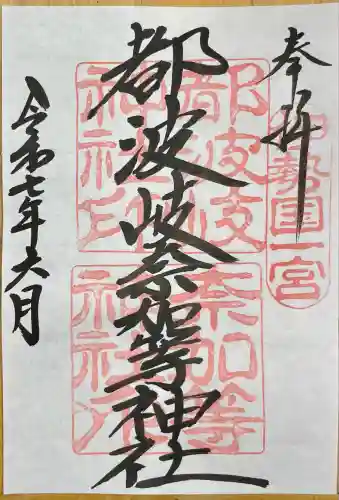 奉拝
伊勢国一宮
都波岐奈加等神社
都波岐
神社印
奈加等
神社印
令和七年六月